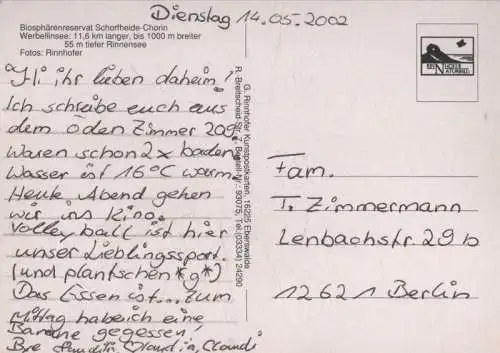 Dienstag 14.05.2002
Biosphärenreservat Schorfheide-Chorin
Werbellinsee: 11,6 km langer, bis 1000 m breiter
55 m tiefer Rinnensee
Fotos: Rinnhofer
Hi ihr lieben daheim!
Ich schreibe euch aus
dem öden Zimmer 209.
Waren schon 2x baden,
Wasser ist 16°C warm.
Heute Abend gehen
wir ins Kino.
Volleyball ist hier
unser Lieblingssport.
(und plantschen *g*)
Das Essen ist... zum
Mittag habe ich eine
Banane gegessen!
Bye Claudia, Claudi
G. Rinnhofer Kunstpostkarten, 16225 Eberswalde
R.-Breitscheid-Str. 7, Bestell-Nr.: 93075, Tel.(03334) 24290
Fam.
T. Zimmermann
Lenbachstr. 29 b
12621 Berlin